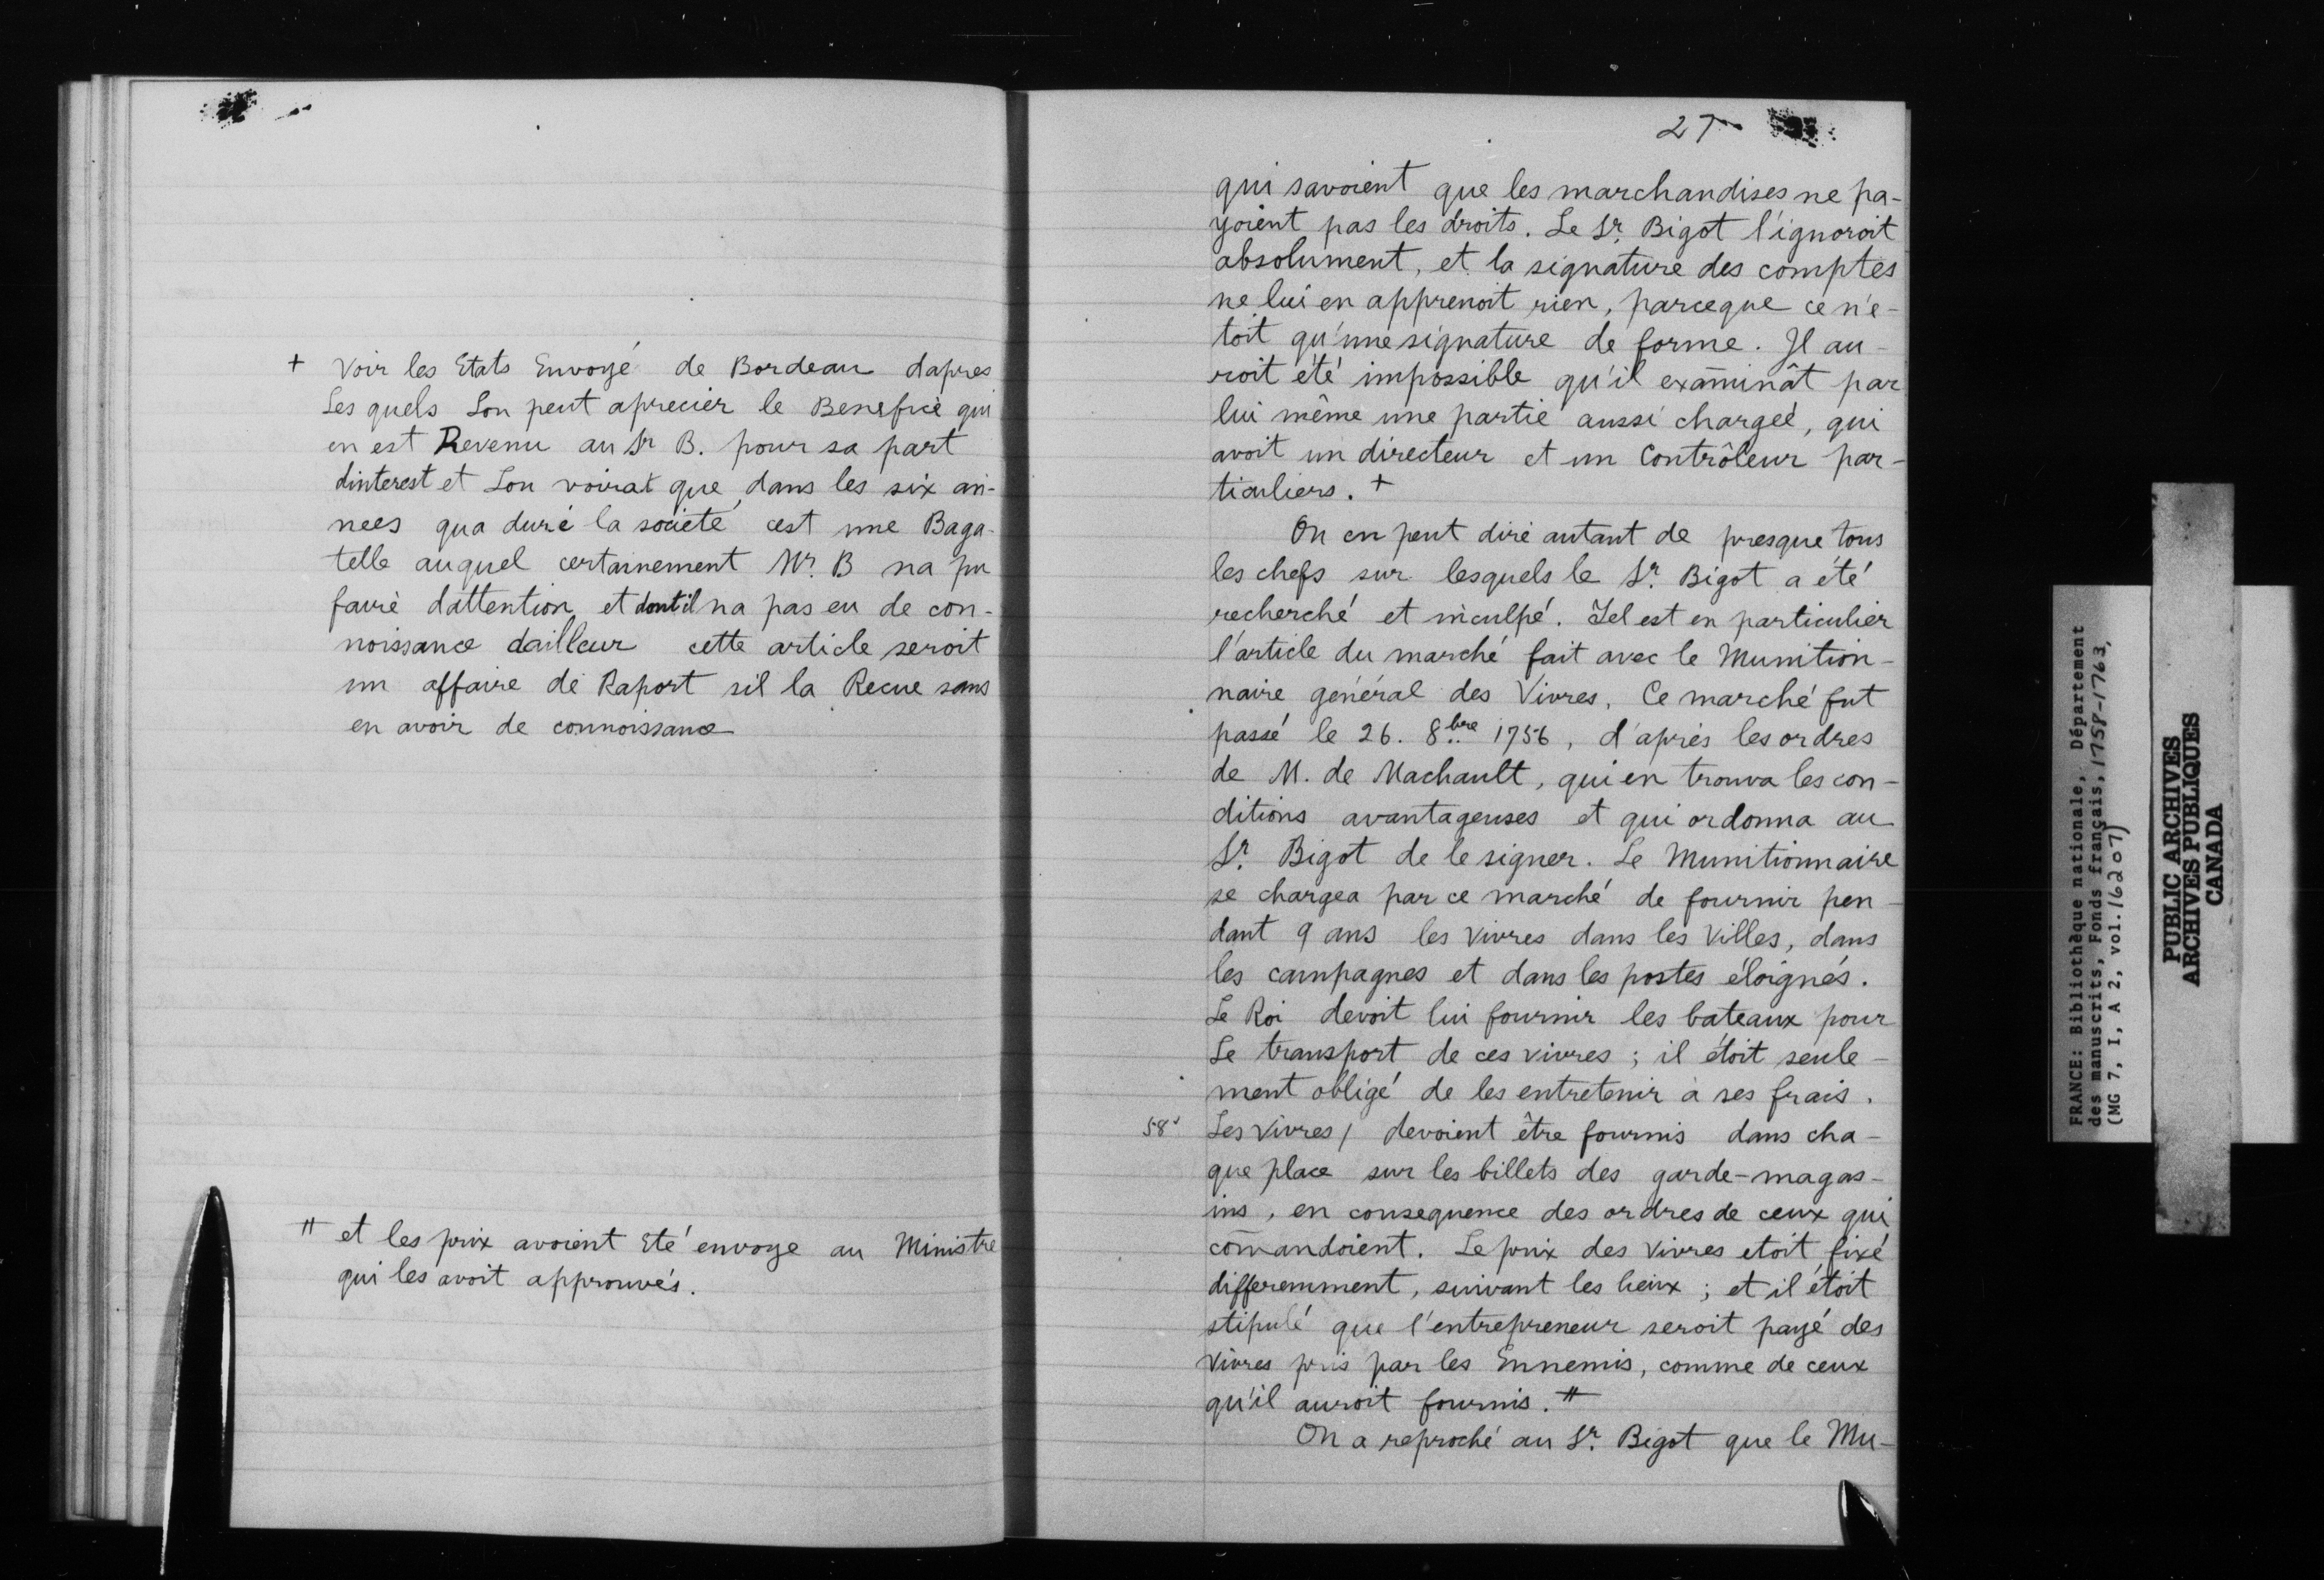 + Voir les Etats Envoyé de Bordeau dapres
Les quels Lon peut aprecier le Benefice qui
en est Revenu au Sr B. pour sa part
dinterest et Lon voirat que dans les six an-
nees qua duré la société cest une Baga-
telle auquel certainement Mr. B na pu
faire dattention et dont il na pas eu de con-
noissance dailleur cette article seroit
un affaire de Raport sil la Recue sans
en avoir de connoissance
# et les prix avoient Eté envoye au Ministre
qui les avoit approuvés.
27
qui savoient que les marchandises ne pa-
yoient pas les droits. Le Sr. Bigot l'ignoroit
absolument, et la signature des comptes
ne lui en apprenoit rien, parceque ce n'é-
toit qu'une signature de forme. Il au-
roit été impossible qu'il examinât par
lui même une partie aussi chargeé, qui
avoit un directeur et un Contrôleur par-
ticuliers. +
On en peut dire autant de presque tous
les chefs sur lesquels le Sr. Bigot a été
recherché et inculpé. Tel est en particulier
l'article du marché fait avec le Munition-
naire général des Vivres. Ce marché fut
passé le 26. 8bre 1756, d'après les ordres
de M. de Machault, qui en trouva les con-
ditions avantageuses et qui ordonna au
Sr. Bigot de le signer. Le Munitionnaire
se chargea par ce marché de fournir pen-
dant 9 ans les vivres dans les Villes, dans
les campagnes et dans les postes éloignés.
Le Roi devoit lui fournir les bateaux pour
Le transport de ces vivres ; il étoit seule-
ment obligé de les entretenir à ses frais.
58v Les vivres / devoient être fournis dans cha-
que place sur les billets des garde-magas-
ins, en consequence des ordres de ceux qui
com̄andoient. Le prix des vivres etoit fixé
differemment, suivant les lieux ; et il étoit
stipulé que l'entrepreneur seroit payé des
vivres pris par les Ennemis, comme de ceux
qu'il auroit fournis. #
On a reproché au Sr. Bigot que le Mu-
FRANCE: Bibliothèque nationale, Département
des manuscrits, Fonds français, 1758-1763,
(MG 7, I, A 2, vol. 16207)
PUBLIC ARCHIVES
ARCHIVES PUBLIQUES
CANADA